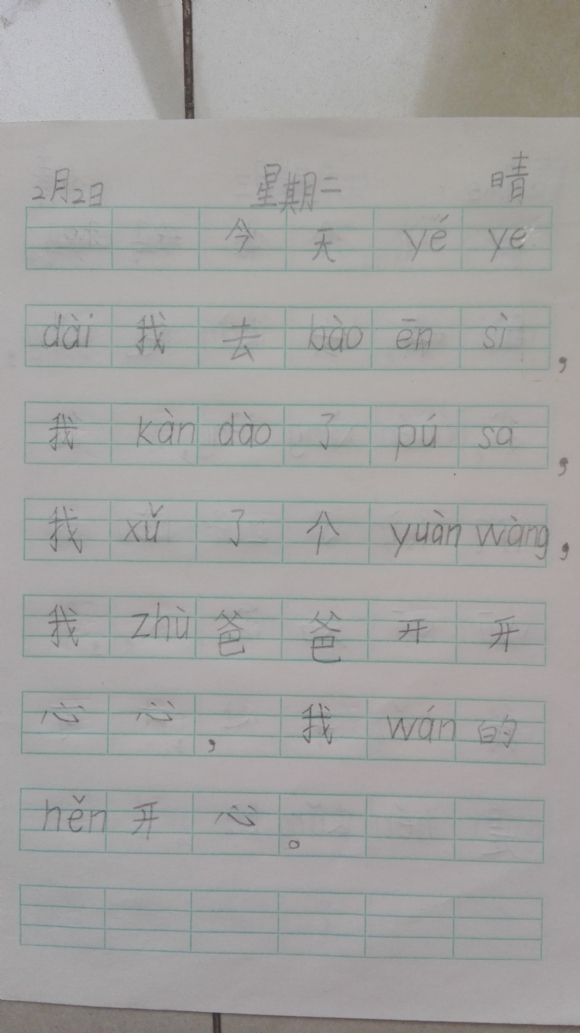 2月2日 星期二 晴
今天yéye
dài找去bàoēnsì,
我kàndào了púsa,
找xǔ了个yuànwàng,
我zhù爸爸开开
心心,我wán的
hěn开心。